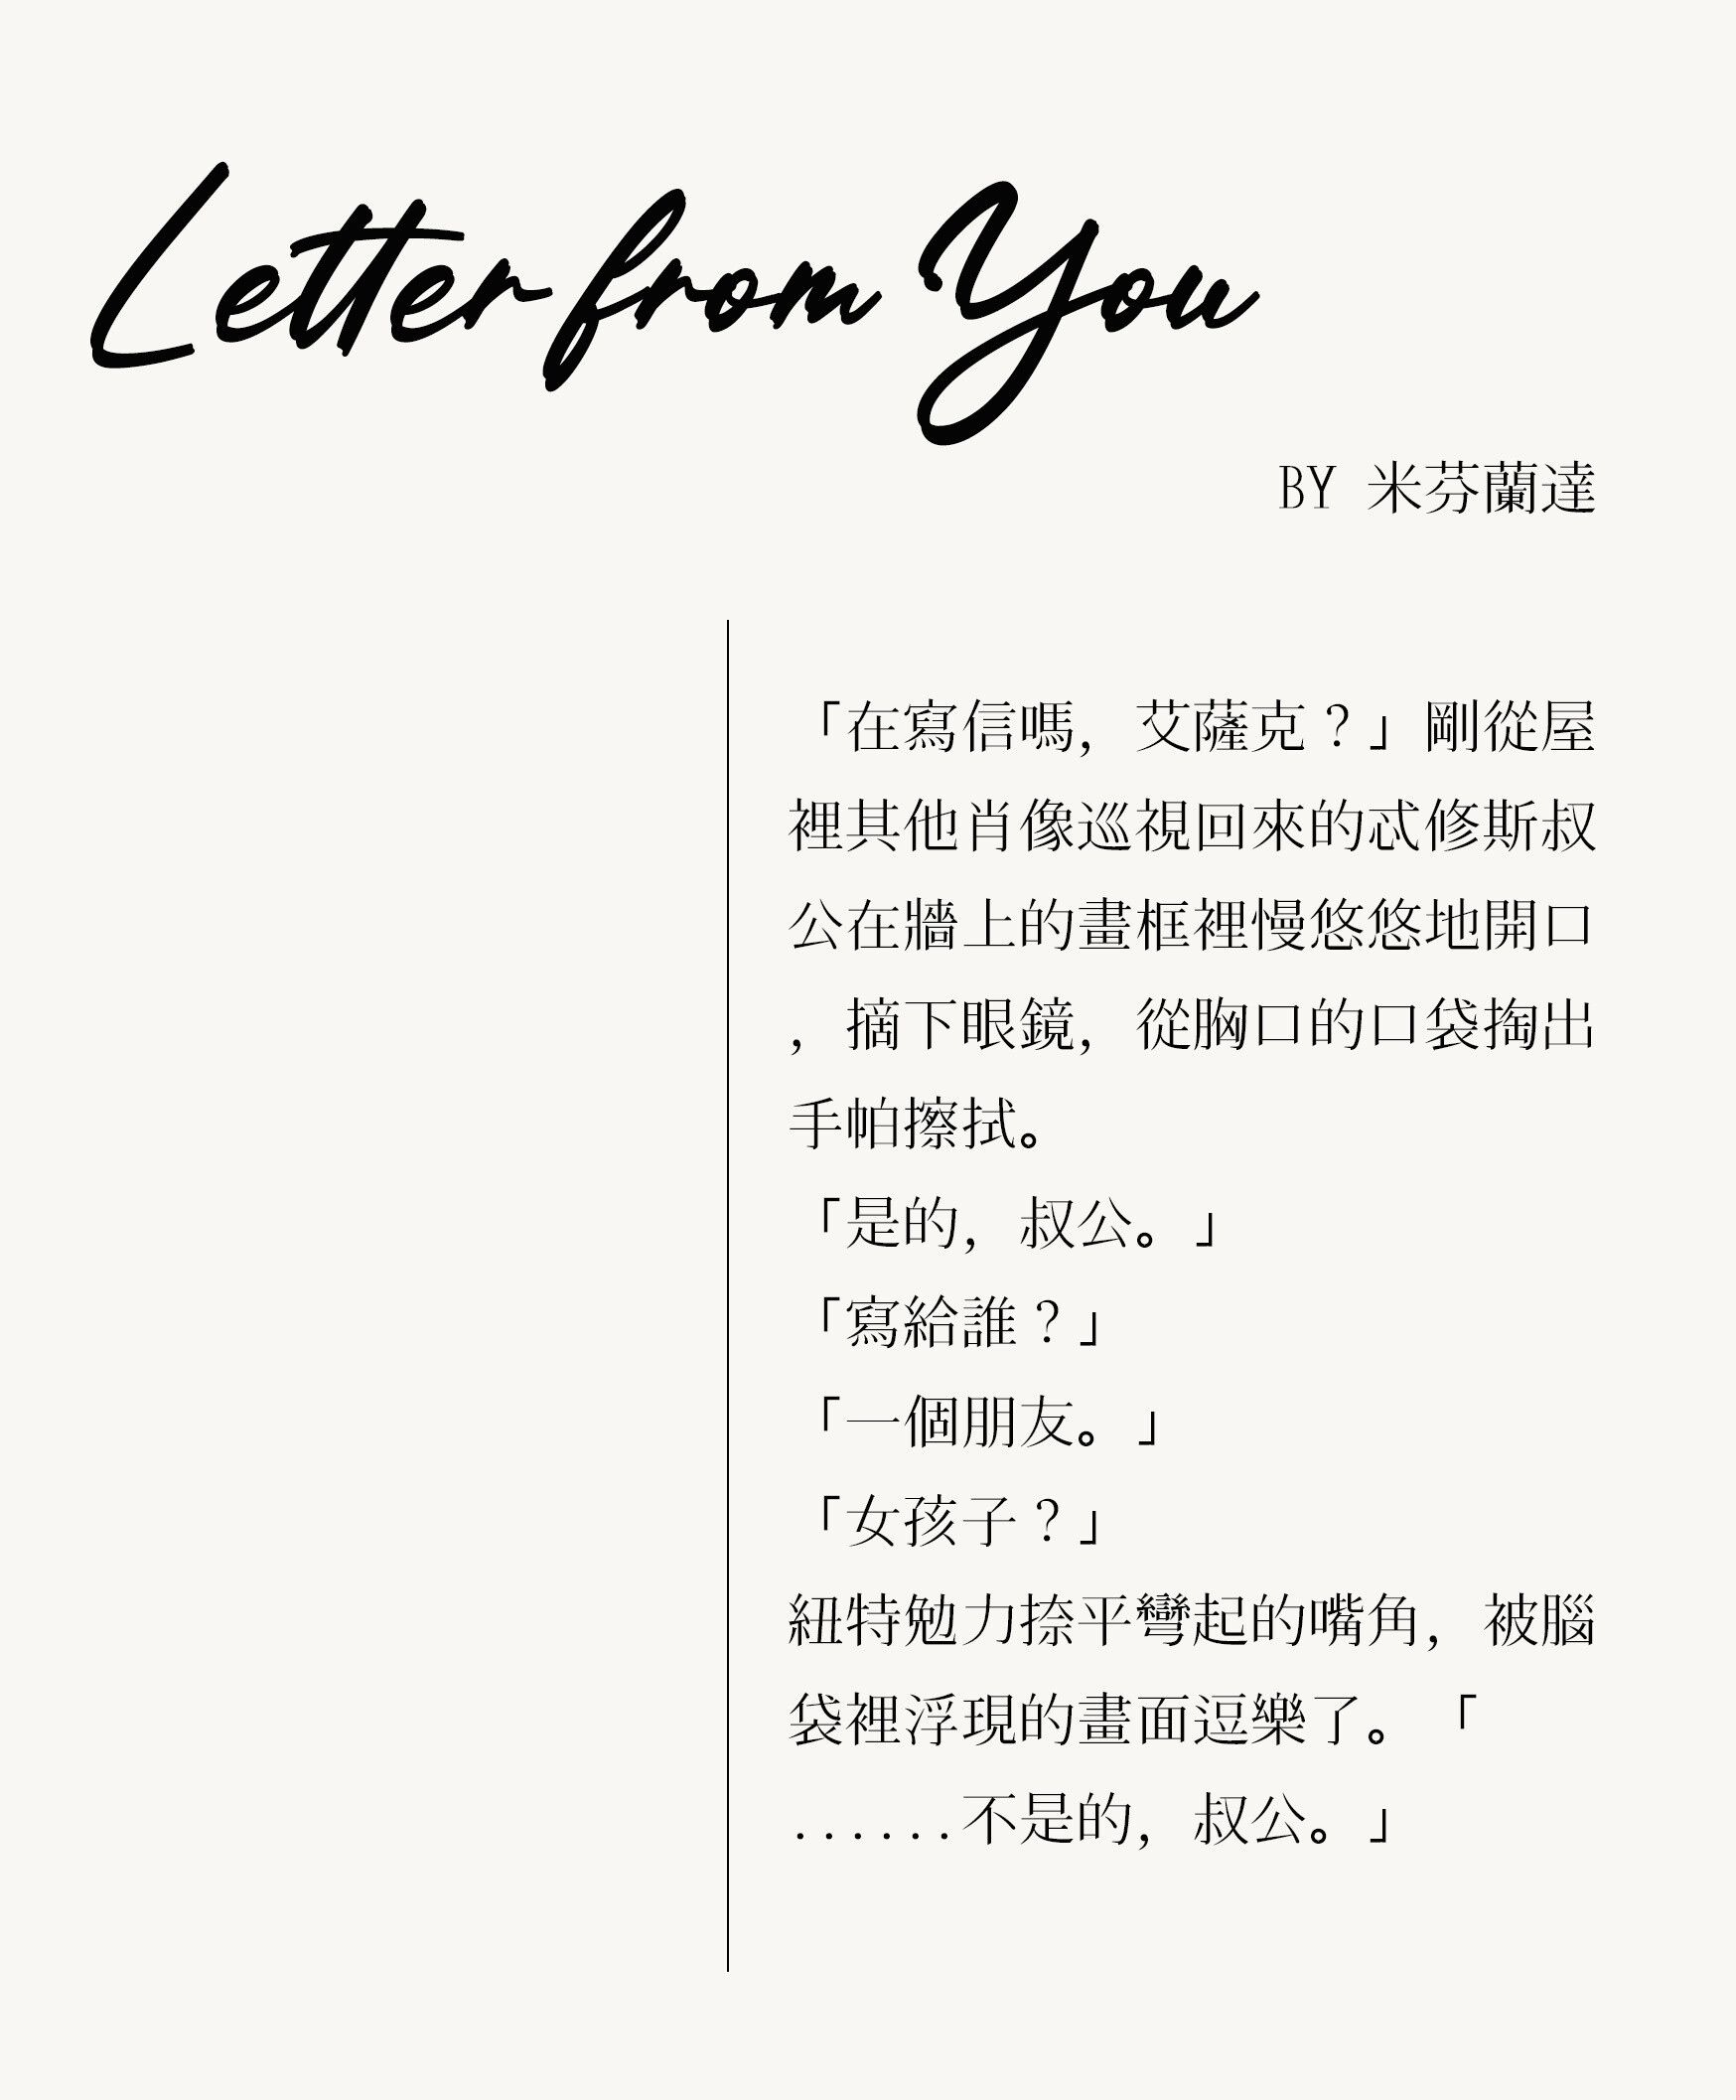 Letter from You
BY 米芬蘭達
「在寫信嗎，艾薩克？」剛從屋
裡其他肖像巡視回來的忒修斯叔
公在牆上的畫框裡慢悠悠地開口
，摘下眼鏡，從胸口的口袋掏出
手帕擦拭。
「是的，叔公。」
「寫給誰？」
「一個朋友。」
「女孩子？」
紐特勉力捺平彎起的嘴角，被腦
袋裡浮現的畫面逗樂了。「
......不是的，叔公。」